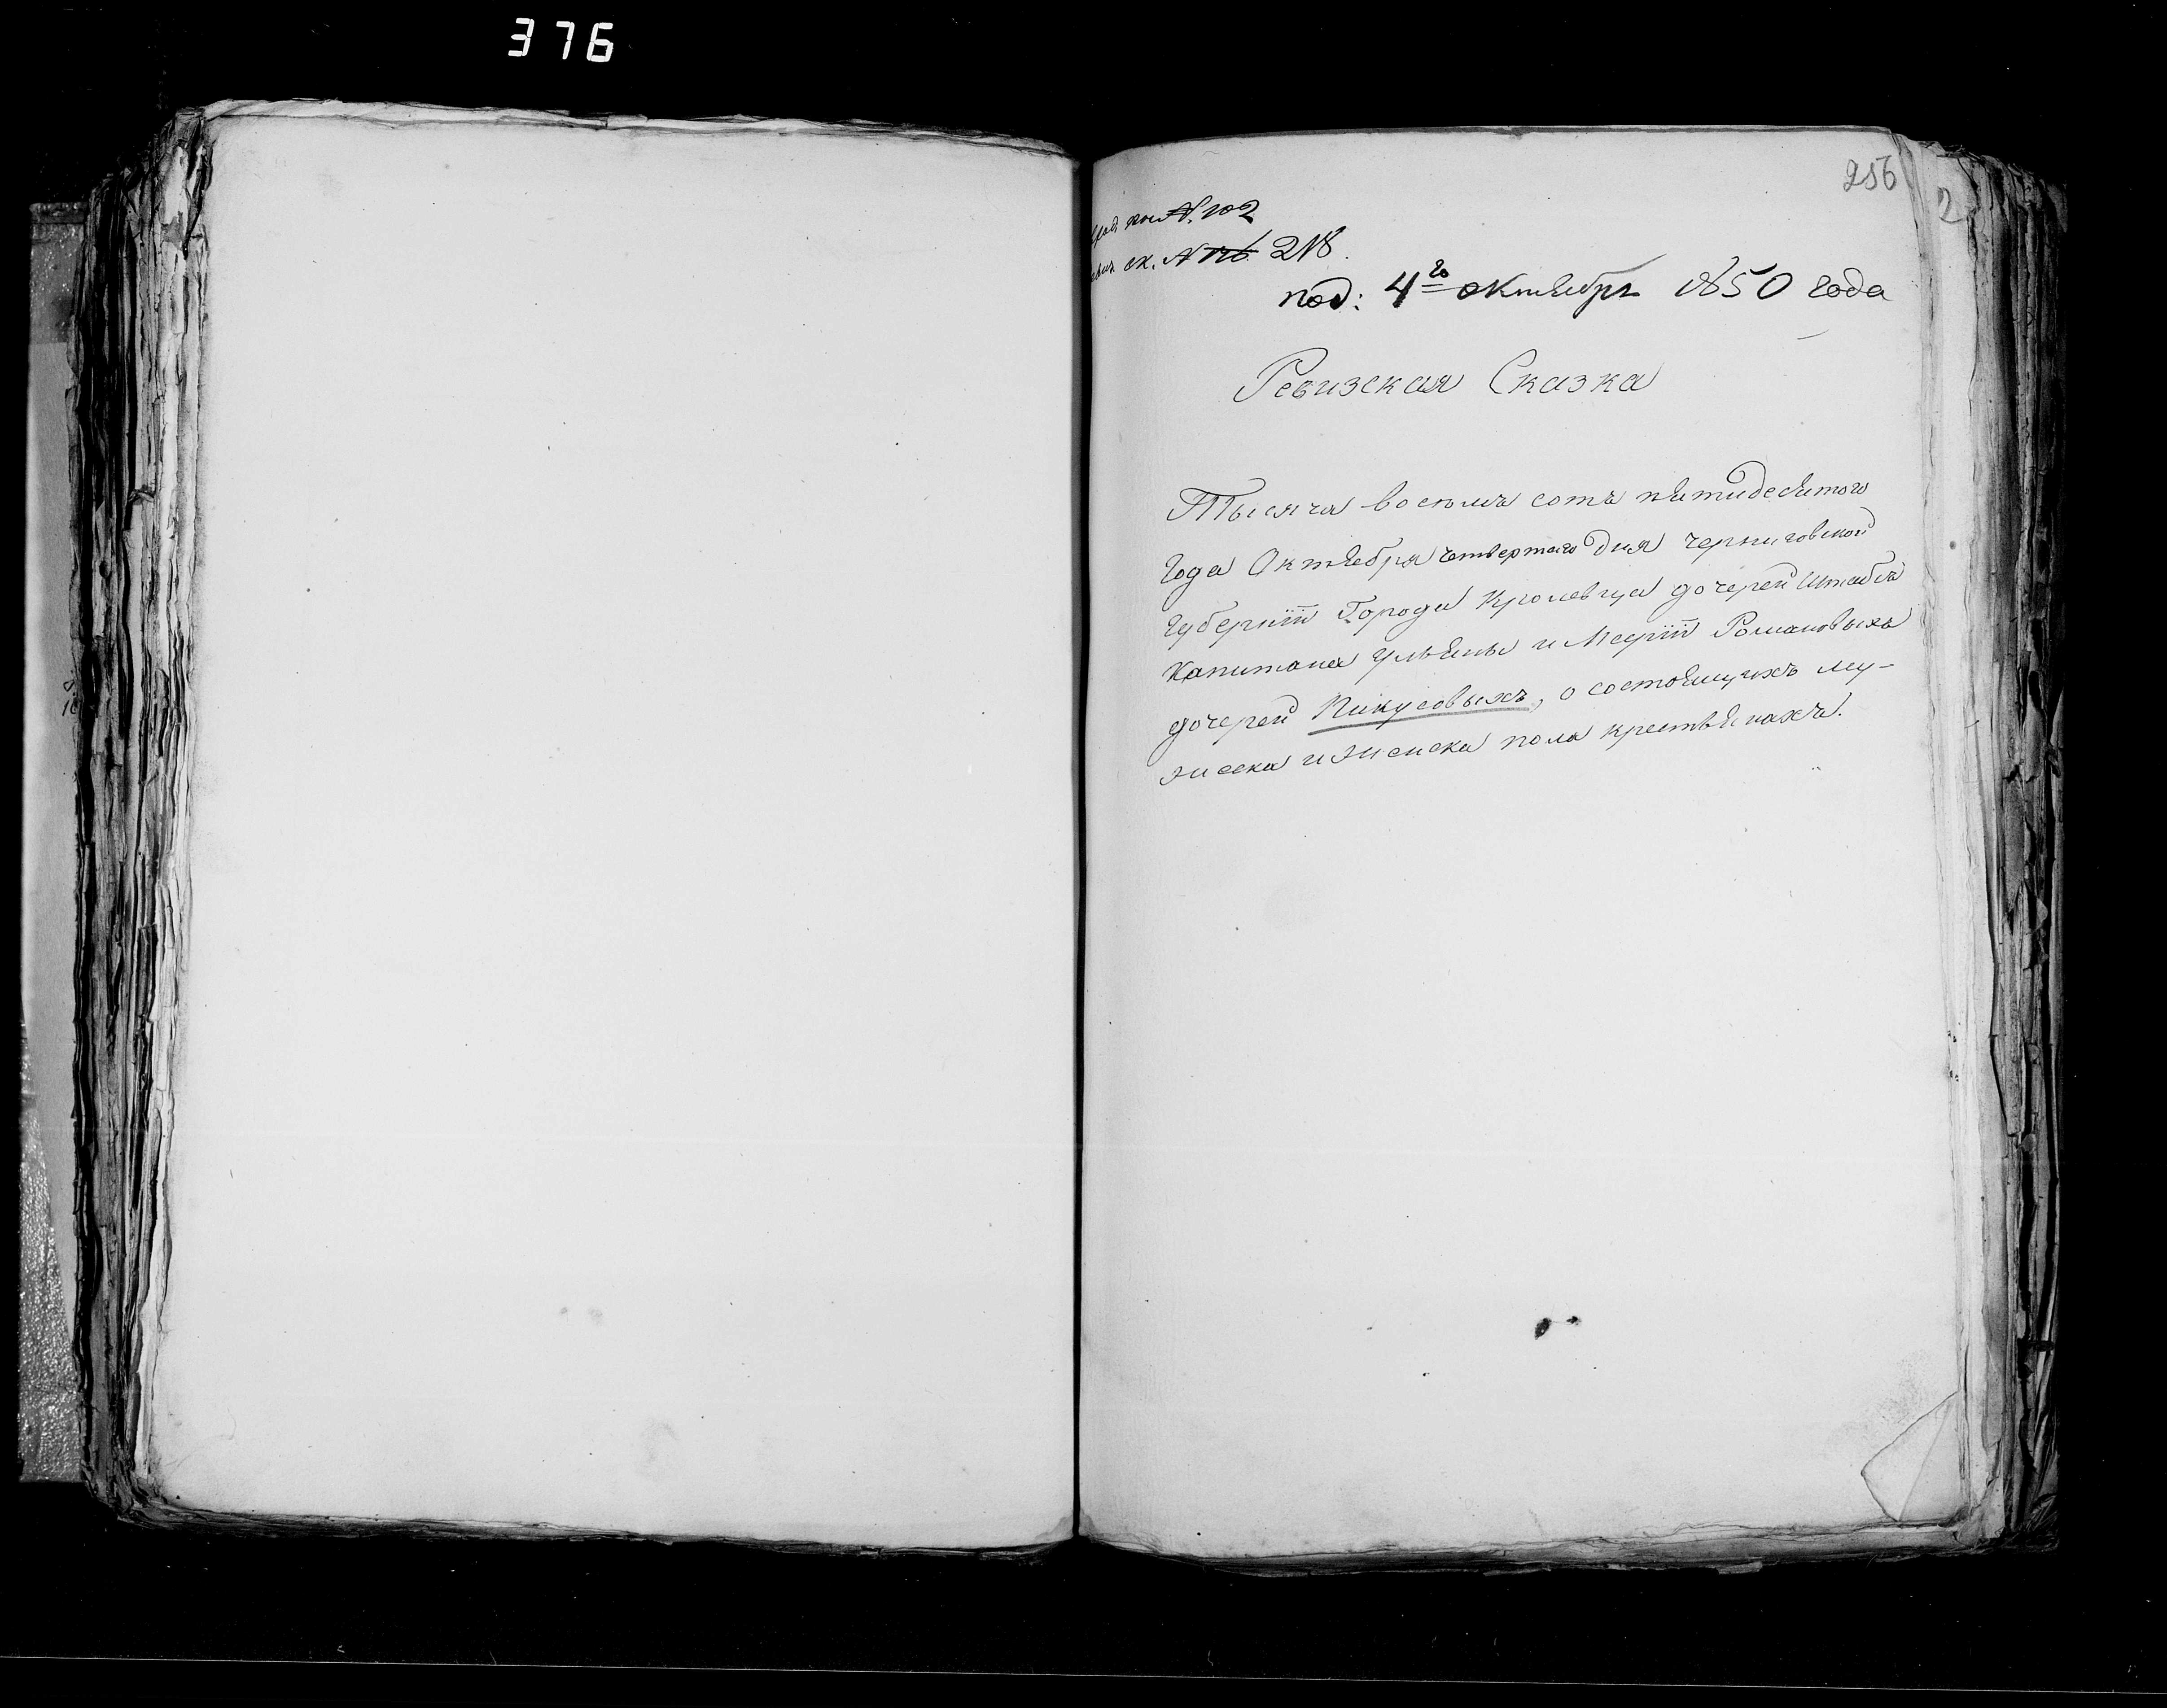 376
256
№ 102
ск. № 126 218.
под: 4го октября 1850 года
Ревизская Сказка
Тысяча восемъ сотъ пятидесятого
Года Октября четвертого дня Черниговской
Губернїи Города Кролевца дочерей Штабсъ
Капитана Ульяны и Марїи Романовыхъ
дочерей Пикусовыхъ, о состоящихъ му-
жеска и женска пола крестьянахъ.